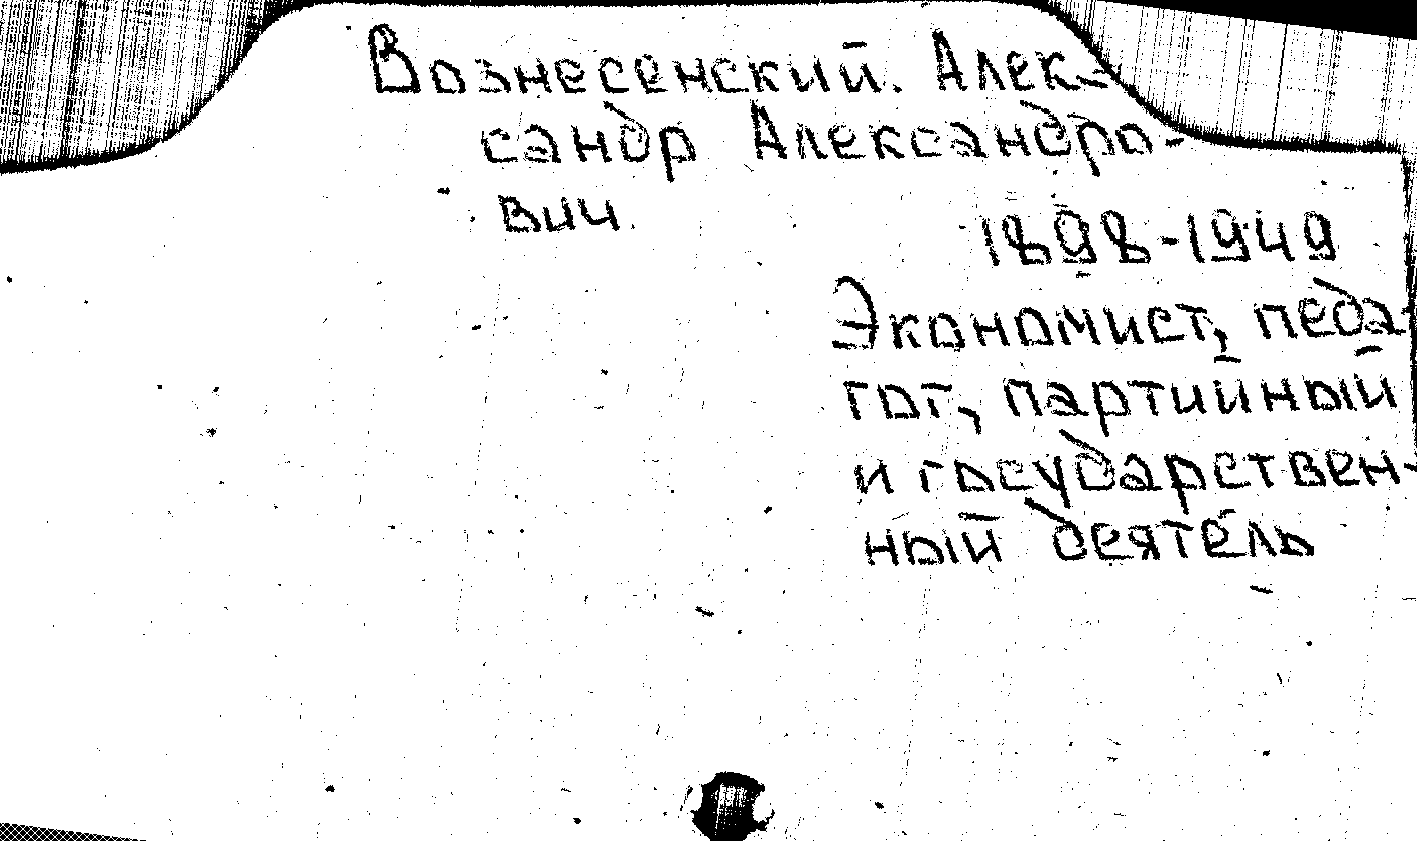 Вознесенский. Алек-
сандр Александро-
вич.
1898-1949
Экономист, педа-
гог, партийный
и государствен-
ный деятель